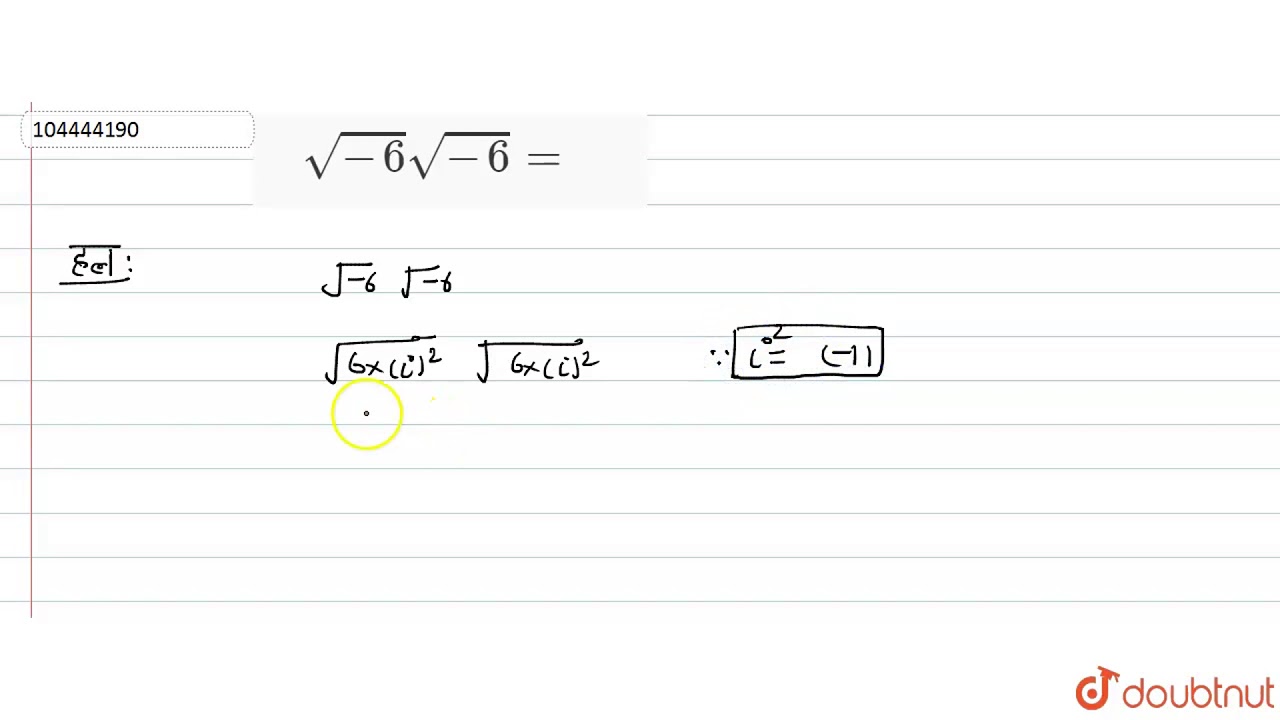 104444190
√−6√−6 =
हल :
√-6 √-6
√6×(i)² √6×(i)² ∵ i² = (-1)
doubtnut